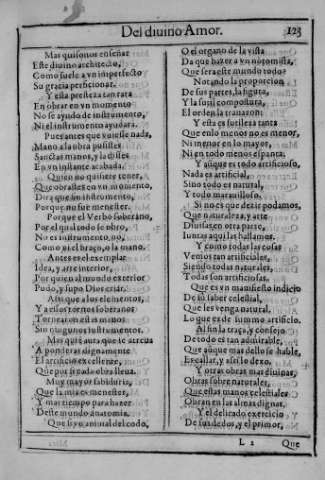 Del diuino Amor. 123
Mas quisonos enseñar
Este diuino architecto,
Como suele a vn imperfecto
Su gracia perficionar.
Y esta presteza tan rara
En obrar en vn momento
No se ayudò de instrumento,
Ni el instrumento ayudara.
Pues antes que uuiesse nada,
Mano a la obra pusistes
Sanctas manos, y la distes
En vn instante acabada.
Quien no quisiere tener,
Que obrastes en vn momento,
Dirà que instrumento,
Porque no fue menester.
Porque el Verbo soberano,
Por el qual todo se obro,
No es instrumento, no,
Como ni el braço, ni la mano.
Antes es el exemplar
Idea, y arte interior,
Por quien al mundo exterior
Pudo, y supo Dios criar.
Assi que a los elementos,
Y a essos tornos soberanos
Tornearon assi manos
Sin ningunos instrumentos.
Mas quiē aura que se atreua
A ponderar dignamente
El artificio excellente,
Que por si cada obra lleua.
Muy mayor sabiduria,
Que la mia es menester,
Y mas tiempo para hazer
Deste mundo anatomia.
Que si yo animal del codo,
O el organo de la vista
Da que hazer a vn notomista,
Que sera este mundo todo?
Notando la proporcion
De sus partes, la figura,
Y la sutil compostura,
El orden, la trauazon:
Y esta es sutileza tanta
Que en lo menos no es menor,
Ni menor en lo mayor,
Ni en todo menos espanta.
Y aūque es todo artificioso,
Nada es artificial,
Sino todo es natural,
Y todo marauilloso.
Si no es que dezir podamos,
Que naturaleza, y arte
Diuisas en otra parte,
Iuntas aqui las hallamos.
Y como todas las cosas
Vemos tan artificiales,
Siendo todas naturales,
Todas son artificiosas.
Que es vn manifiesto indicio
De su saber celestial,
Que les venga natural
Lo que es de summo artificio.
Al fin la traça, y consejo
De todo es tan admirable,
Que aūque mas dello se hable,
Es callar, y assi lo dexo.
Y otras obras mas diuinas,
Obras sobre naturales,
Que estas manos celestiales
Obran en las almas dignas.
Y el delicado exercicio
De sus dedos, y el primor,
L 2 Que